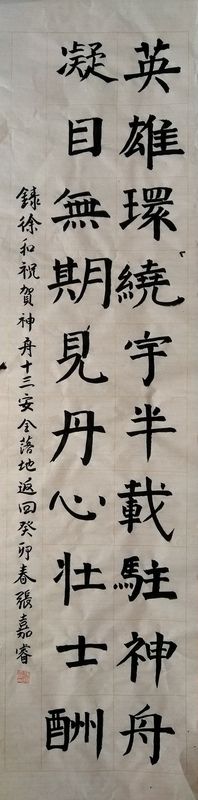 英雄環繞宇半載駐神舟
凝目無期見丹心壯士酬
録徐和祝賀神舟十三安全落地返回癸卯春張嘉睿